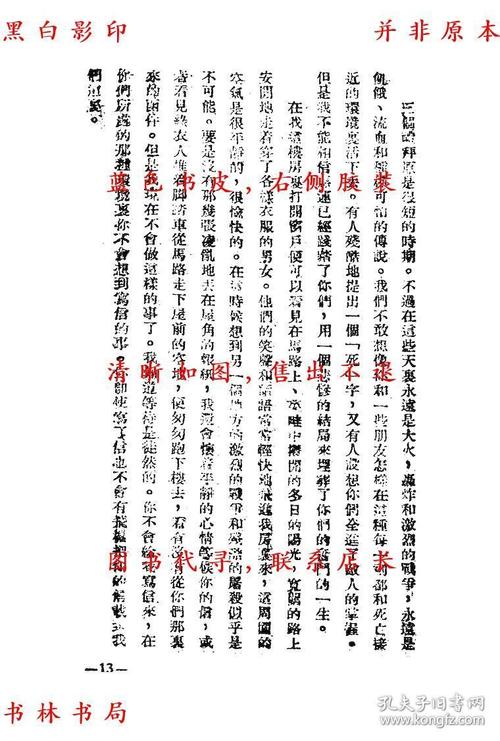 黑白影印
并非原本
三個禮拜原是很短的時期。不過在這些天裏永遠是大火，轟炸和激烈的戰爭，永遠是
飢餓、流血和種種可怕的傳說。我們不敢想像你和一些朋友怎樣在這種每一刻都和死亡接
近的環境裏活下去。有人殘酷地提出一個「死」字，又有人設想你們全進了敵人的掌握。
但是我不能相信惡運已經踐踏了你們，用一個悲慘的結局來埋葬了你們的奮鬥的一生。
在我這樓房裏打開窗戶便可以看見在馬路上、草畦中攤開的冬日的陽光，寬闊的路上
安閒地走着穿了各樣衣服的男女。他們的笑聲和語聲常常輕快地飛進我房裏來，這周圍的
空氣是很年靜的，很愉快的。在這時候想到另一個地方的激烈的戰爭和殘酷的屠殺似乎是
不可能。要是沒有那幾張凌亂地丟在屋角的報紙，我還會懷着平靜的心情等候你的信，或
者看見綠衣人推着脚踏車從馬路走下屋前的空地，便匆匆跑下樓去，看有沒有從你們那裏
來的函件。但是我現在不會做這樣的事了。我知道等待是徒然的。你不會給我寫信來，在
你們所處的那種環境裏你不會想到寫信的事。卽使寫了信也不會有
們這裏。
—13—
蓝色书皮，右侧胶装
清晰如图，售出不退
图书代寻，联系店长
书林书局
孔夫子旧书网